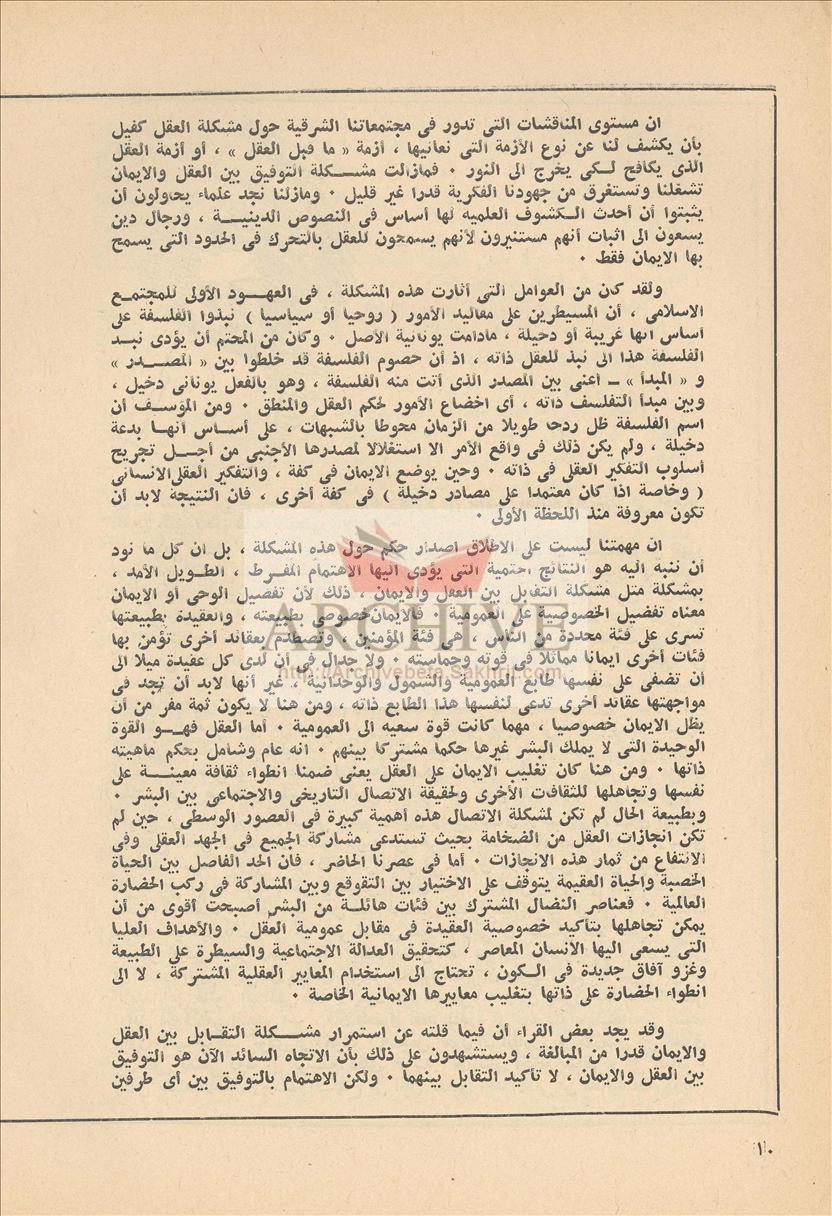 ان مستوى المناقشات التى تدور فى مجتمعاتنا الشرقية حول مشكلة العقل كفيل
بأن يكشف لنا عن نوع الأزمة التى نعانيها ، أزمة « ما قبل العقل » ، أو أزمة العقل
الذى يكافح لكى يخرج الى النور ٠ فمازالت مشكلة التوفيق بين العقل والايمان
تشغلنا وتستغرق من جهودنا الفكرية قدرا غير قليل ٠ ومازلنا نجد علماء يحاولون أن
يثبتوا أن أحدث الكشوف العلميه لها أساس فى النصوص الدينية ، ورجال دين
يسعون الى اثبات أنهم مستنيرون لأنهم يسمحون للعقل بالتحرك فى الحدود التى يسمح
بها الايمان فقط ٠
ولقد كان من العوامل التى أثارت هذه المشكلة ، فى العهود الأولى للمجتمع
الاسلامى ، أن المسيطرين على مقاليد الأمور ( روحيا أو سياسيا ) نبذوا الفلسفة على
أساس انها غريبة أو دخيلة ، مادامت يونانية الأصل ٠ وكان من المحتم أن يؤدى نبذ
الفلسفة هذا الى نبذ للعقل ذاته ، اذ أن خصوم الفلسفة قد خلطوا بين « المصدر »
و « المبدأ » ــ أعنى بين المصدر الذى أتت منه الفلسفة ، وهو بالفعل يونانى دخيل ،
وبين مبدأ التفلسف ذاته ، أى اخضاع الأمور لحكم العقل والمنطق ٠ ومن المؤسف أن
اسم الفلسفة ظل ردحا طويلا من الزمان محوطا بالشبهات ، على أساس أنها بدعة
دخيلة ، ولم يكن ذلك فى واقع الأمر الا استغلالا لمصدرها الأجنبى من أجل تجريح
أسلوب التفكير العقلى فى ذاته ٠ وحين يوضع الايمان فى كفة ، والتفكير العقلى الانسانى
( وخاصة اذا كان معتمدا على مصادر دخيلة ) فى كفة أخرى ، فان النتيجة لابد أن
تكون معروفة منذ اللحظة الأولى ٠
ان مهمتنا ليست على الاطلاق اصدار حكم حول هذه المشكلة ، بل ان كل ما نود
أن ننبه اليه هو النتائج الحتمية التى يؤدى اليها الاهتمام المفرط ، الطويل الأمد ،
بمشكلة مثل مشكلة التقابل بين العقل والايمان ، ذلك لأن تفضيل الوحى أو الايمان
معناه تفضيل الخصوصية على العمومية ٠ فالايمان خصوصى بطبيعته ، والعقيدة بطبيعتها
تسرى على فئة محددة من الناس ، هى فئة المؤمنين ، وتصطدم بعقائد أخرى تؤمن بها
فئات أخرى ايمانا مماثلا فى قوته وحماسته ٠ ولا جدال فى أن لدى كل عقيدة ميلا الى
أن تضفى على نفسها طابع العمومية والشمول والوحدانية ، غير أنها لابد أن تجد فى
مواجهتها عقائد أخرى تدعى لنفسها هذا الطابع ذاته ، ومن هنا لا يكون ثمة مفر من أن
يظل الايمان خصوصيا ، مهما كانت قوة سعيه الى العمومية ٠ أما العقل فهو القوة
الوحيدة التى لا يملك البشر غيرها حكما مشتركا بينهم ٠ انه عام وشامل بحكم ماهيته
ذاتها ٠ ومن هنا كان تغليب الايمان على العقل يعنى ضمنا انطواء ثقافة معينة على
نفسها وتجاهلها للثقافات الأخرى ولحقيقة الاتصال التاريخى والاجتماعى بين البشر ٠
وبطبيعة الحال لم تكن لمشكلة الاتصال هذه أهمية كبيرة فى العصور الوسطى ، حين لم
تكن انجازات العقل من الضخامة بحيث تستدعى مشاركة الجميع فى الجهد العقلى وفى
الانتفاع من ثمار هذه الانجازات ٠ أما فى عصرنا الحاضر ، فان الحد الفاصل بين الحياة
الخصبة والحياة العقيمة يتوقف على الاختيار بين التقوقع وبين المشاركة فى ركب الحضارة
العالمية ٠ فعناصر النضال المشترك بين فئات هائلة من البشر أصبحت أقوى من أن
يمكن تجاهلها بتأكيد خصوصية العقيدة فى مقابل عمومية العقل ٠ والأهداف العليا
التى يسعى اليها الانسان المعاصر ، كتحقيق العدالة الاجتماعية والسيطرة على الطبيعة
وغزو آفاق جديدة فى الكون ، تحتاج الى استخدام المعايير العقلية المشتركة ، لا الى
انطواء الحضارة على ذاتها بتغليب معاييرها الايمانية الخاصة ٠
وقد يجد بعض القراء أن فيما قلته عن استمرار مشكلة التقابل بين العقل
والايمان قدرا من المبالغة ، ويستشهدون على ذلك بأن الاتجاه السائد الآن هو التوفيق
بين العقل والايمان ، لا تأكيد التقابل بينهما ٠ ولكن الاهتمام بالتوفيق بين أى طرفين
١٠
ARCHIVE
http://Archivebeta.Sakhrit.com